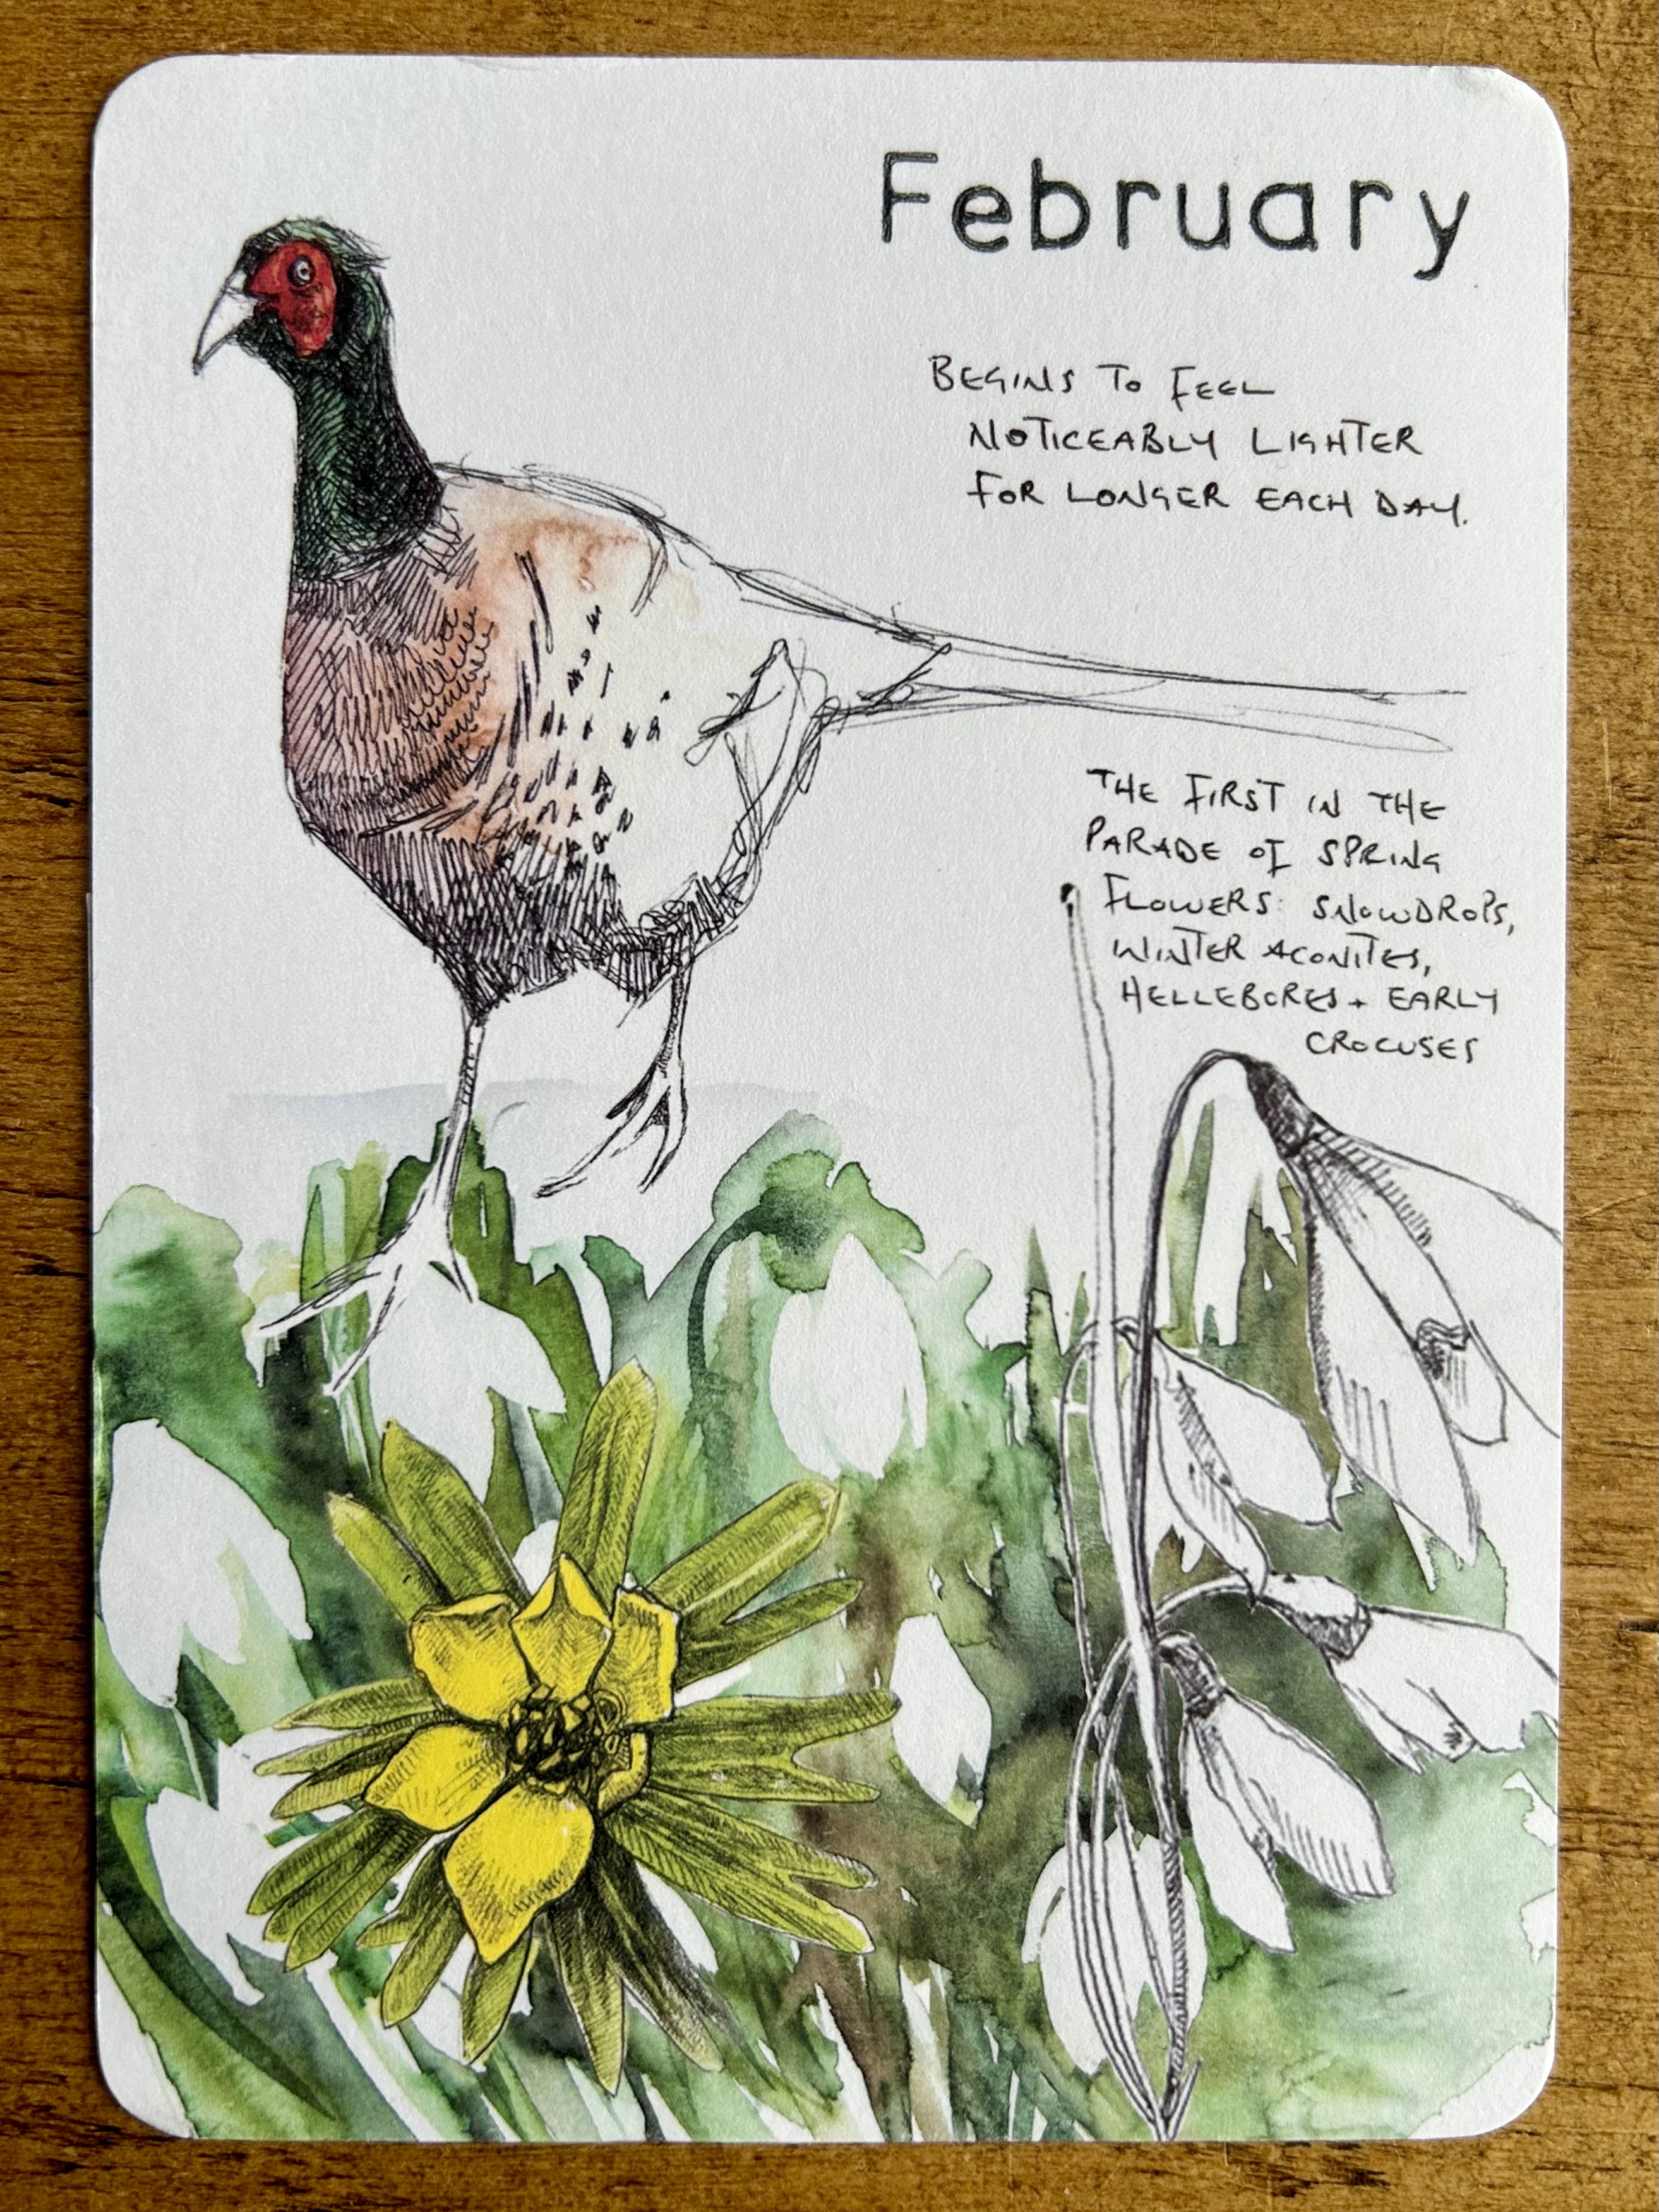 February
BEGINS TO FEEL
NOTICEABLY LIGHTER
FOR LONGER EACH DAY.
THE FIRST IN THE
PARADE OF SPRING
FLOWERS: SNOWDROPS,
WINTER ACONITES,
HELLEBORES + EARLY
CROCUSES